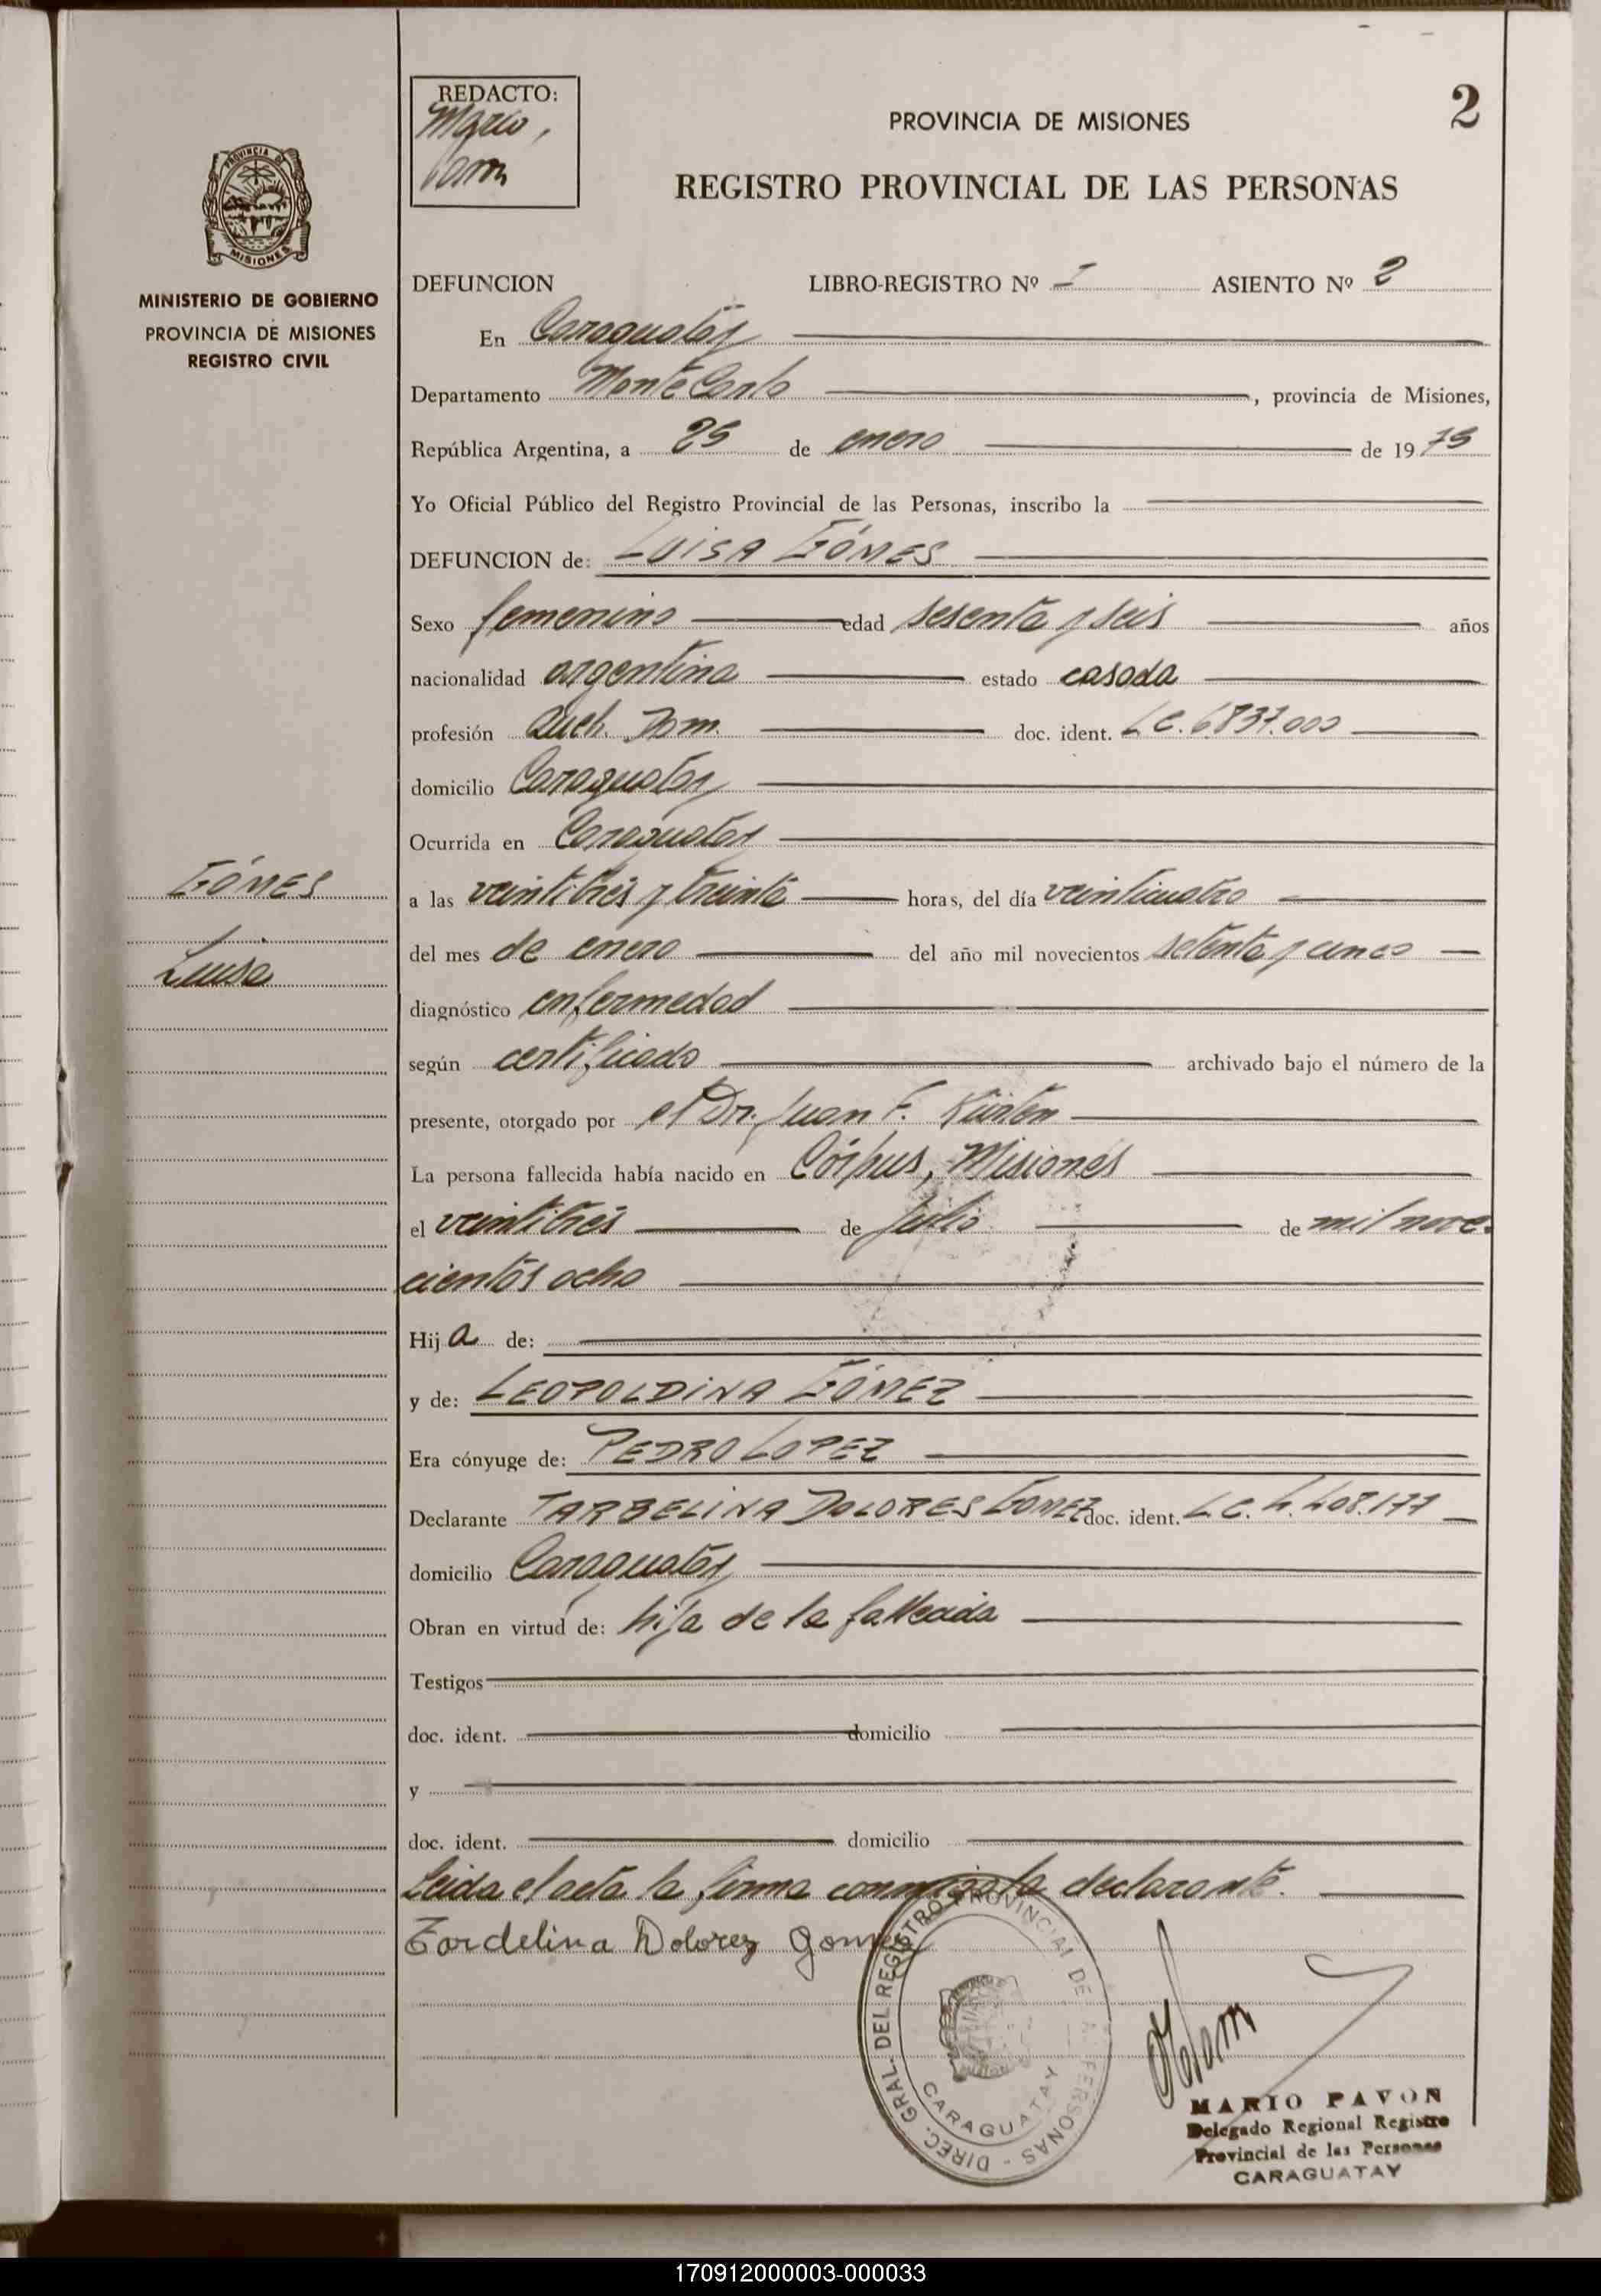 REDACTO:
Mario
PROVINCIA DE MISIONES
2
REGISTRO PROVINCIAL DE LAS PERSONAS
PROVINCIA DE
MISIONES
MINISTERIO DE GOBIERNO
PROVINCIA DE MISIONES
REGISTRO CIVIL
DEFUNCION LIBRO-REGISTRO Nº I ASIENTO Nº 2
En Caraguatay
Departamento MonteCarlo, provincia de Misiones,
República Argentina, a 25 de enero de 1975
Yo Oficial Público del Registro Provincial de las Personas, inscribo la
DEFUNCION de: LUISA GÓMES
Sexo femenino edad sesenta y seis años
nacionalidad argentina estado casada
profesión Queh. Dom. doc. ident. LC. 6.837.000
domicilio Caraguatay
Ocurrida en Caraguatay
GÓMES
a las veintitrés y treinta horas, del día veinticuatro
Luisa
del mes de enero del año mil novecientos setenta y cinco
diagnóstico enfermedad
según certificado archivado bajo el número de la
presente, otorgado por el Dr. Juan F. Kürten
La persona fallecida había nacido en Córpus, Misiones
el veintitrés de julio de mil nove-
cientos ocho
Hija de:
y de: LEOPOLDINA GÓMEZ
Era cónyuge de: PEDRO LOPEZ
Declarante TARBELINA DOLORES GOMEZ doc. ident. L.C. 4.408.177
domicilio Caraguatay
Obran en virtud de: hija de la fallecida
Testigos
doc. ident. domicilio
y
doc. ident. domicilio
Leida el acta la firma conmigo la declarante.
Tardelina Dolores Gomez
DIREC. GRAL. DEL REGISTRO PROVINCIAL DE LAS PERSONAS -
CARAGUATAY
MARIO PAVON
Delegado Regional Registro
Provincial de las Personas
CARAGUATAY
170912000003-000033